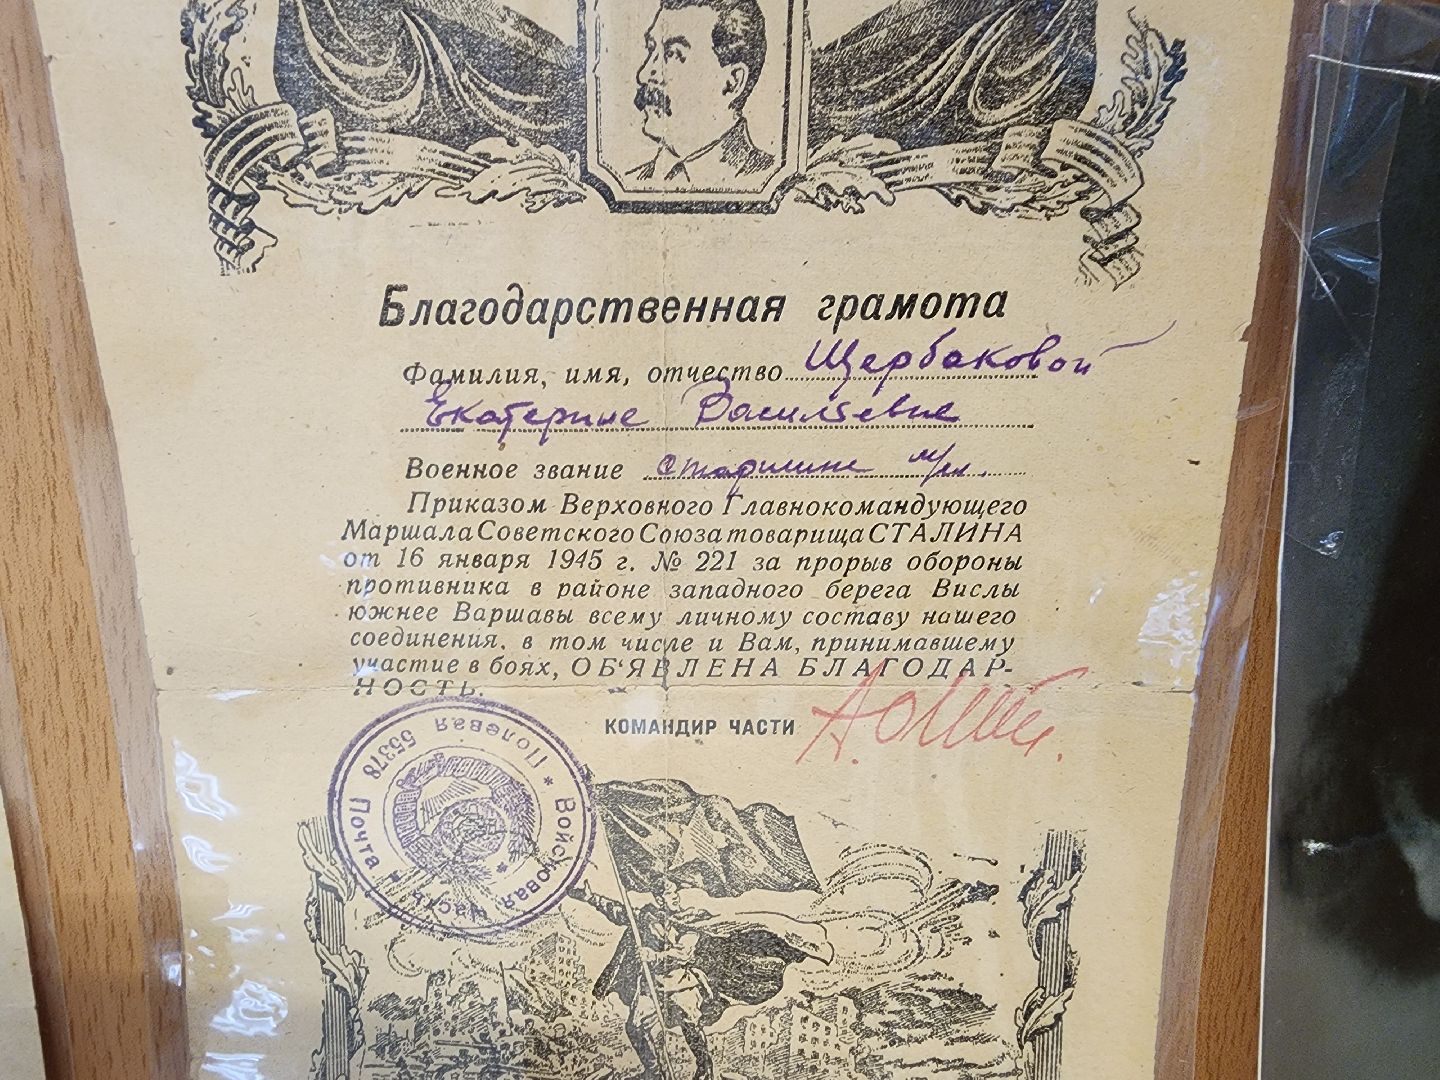 Благодарственная грамота
Фамилия, имя, отчество Щербаковой
Екатерине Васильевне
Военное звание старшине м/сл.
Приказом Верховного Главнокомандующего
Маршала Советского Союза товарища СТАЛИНА
от 16 января 1945 г. № 221 за прорыв обороны
противника в районе западного берега Вислы
южнее Варшавы всему личному составу нашего
соединения, в том числе и Вам, принимавшему
участие в боях, ОБ'ЯВЛЕНА БЛАГОДАР-
НОСТЬ.
КОМАНДИР ЧАСТИ
* Войсковая часть * Полевая Почта 55378